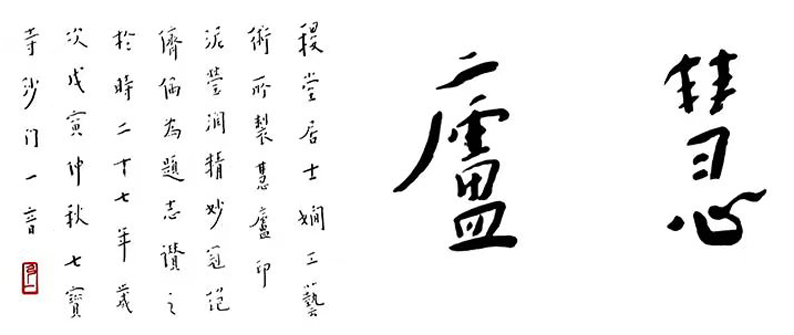 慧廬
稷堂居士嫻工藝
術所製慧廬印
泥瑩润精妙冠絕
儕倆為題志讚之
於時二十七年歲
次戊寅仲秋七寶
寺沙门一音